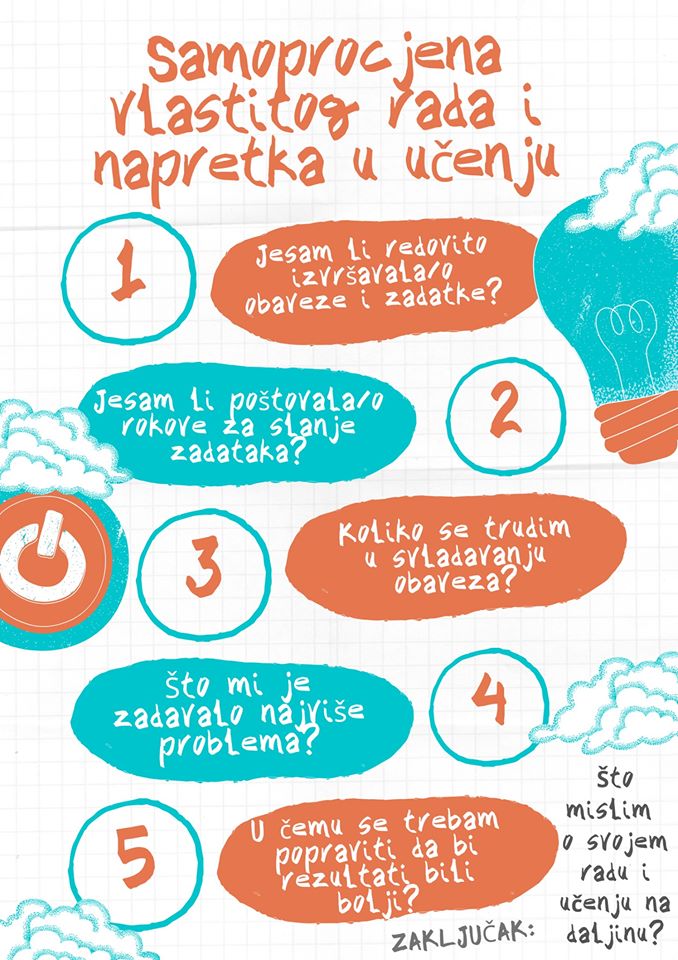 Samoprocjena
vlastitog rada i
napretka u učenju
1
Jesam li redovito
izvršavala/o
obaveze i zadatke?
Jesam li poštovala/o
rokove za slanje
zadataka?
2
3
Koliko se trudim
u svladavanju
obaveza?
Što mi je
zadavalo najviše
problema?
4
5
U čemu se trebam
popraviti da bi
rezultati bili
bolji?
ZAKLJUČAK:
što
mislim
o svojem
radu i
učenju na
daljinu?